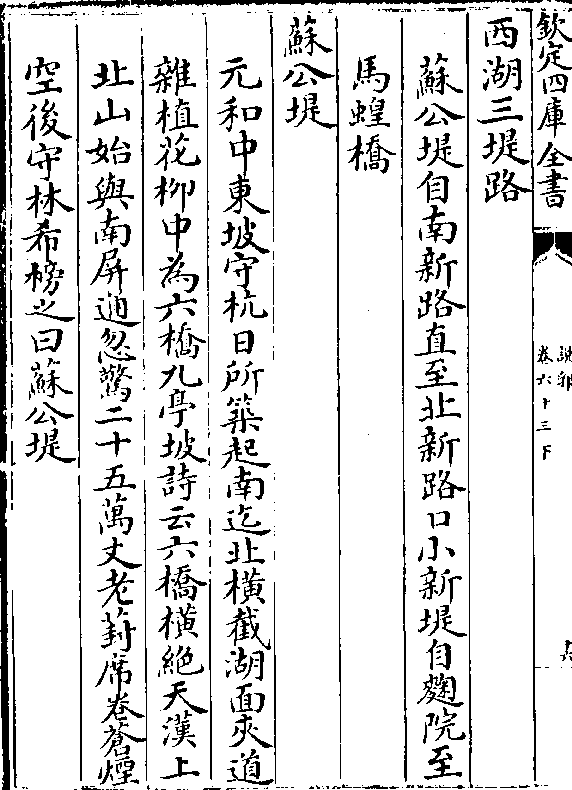 欽定四庫全書
說郛
卷六十三下
西湖三堤路
蘇公堤自南新路直至北新路口小新堤自麴院至
馬蝗橋
蘇公堤
元和中東坡守杭日所築起南迄北橫截湖面夾道
雜植花柳中為六橋九亭坡詩云六橋橫絶天漢上
北山始與南屏通忽驚二十五萬丈老葑席卷蒼煙
空後守林希榜之曰蘇公堤